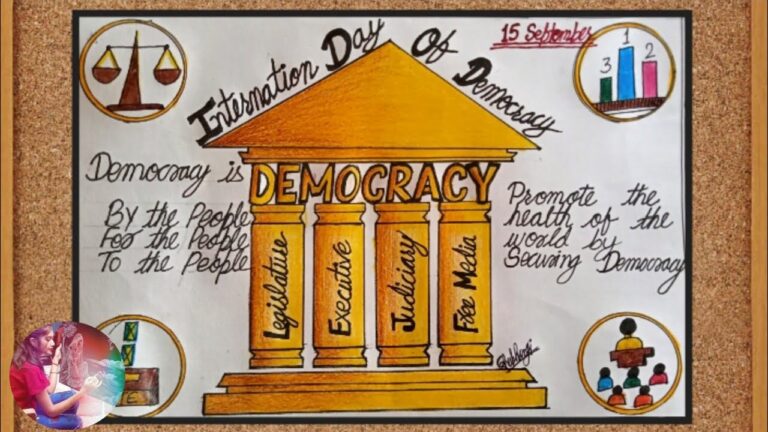 15 September
Internation Day Of Democracy
1
3 2
Democracy is
DEMOCRACY
By the People
For the People
To the People
Promote the
health of the
world by
Securing Democracy
Legislature
Executive
Judiciary
Free Media